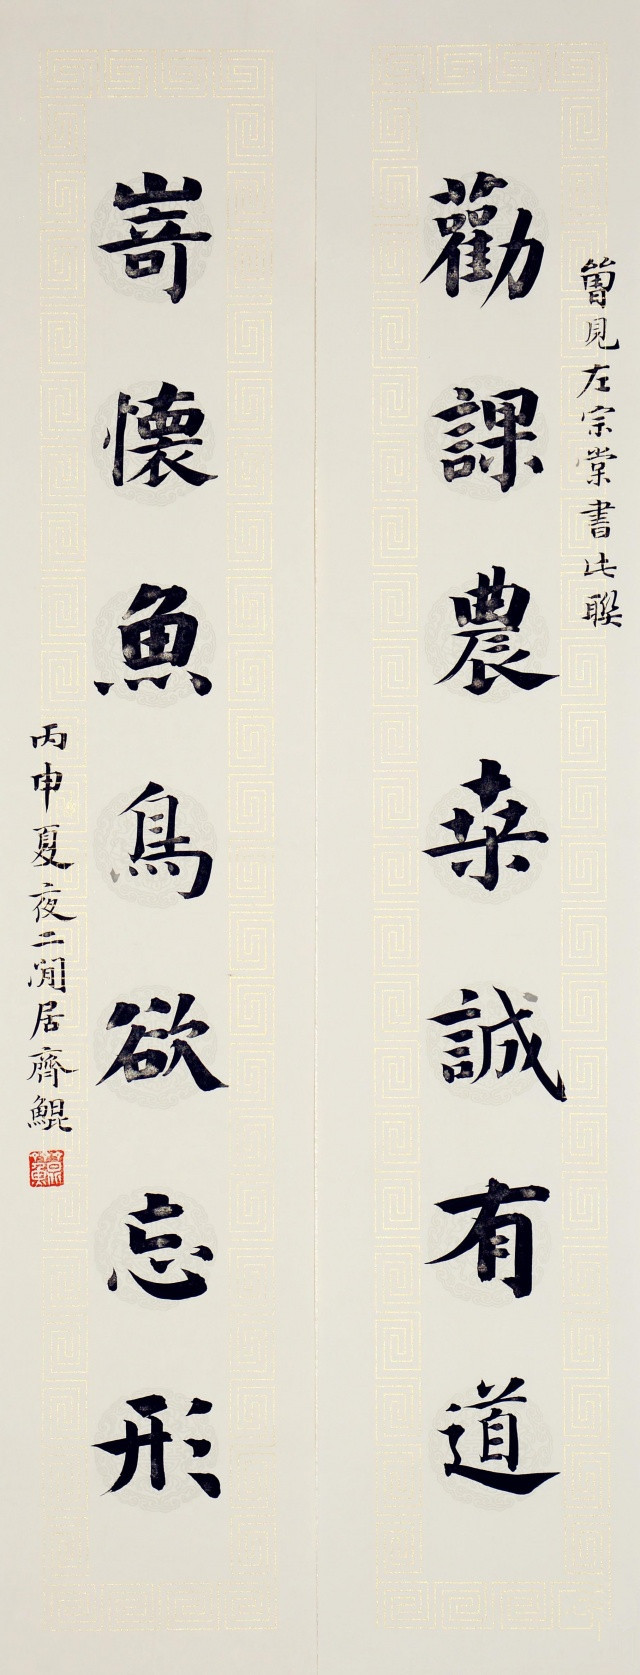 曾見左宗棠書此聯
勸課農桒誠有道
嵜懷魚鳥欲忘形
丙申夏夜二閒居齊鯤